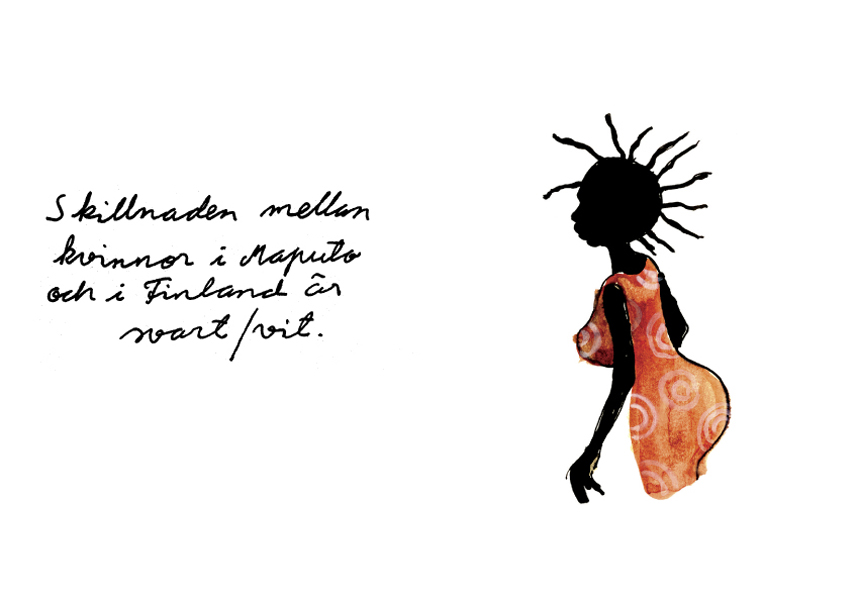 Skillnaden mellan
kvinnor i Maputo
och i Finland är
svart/vit.